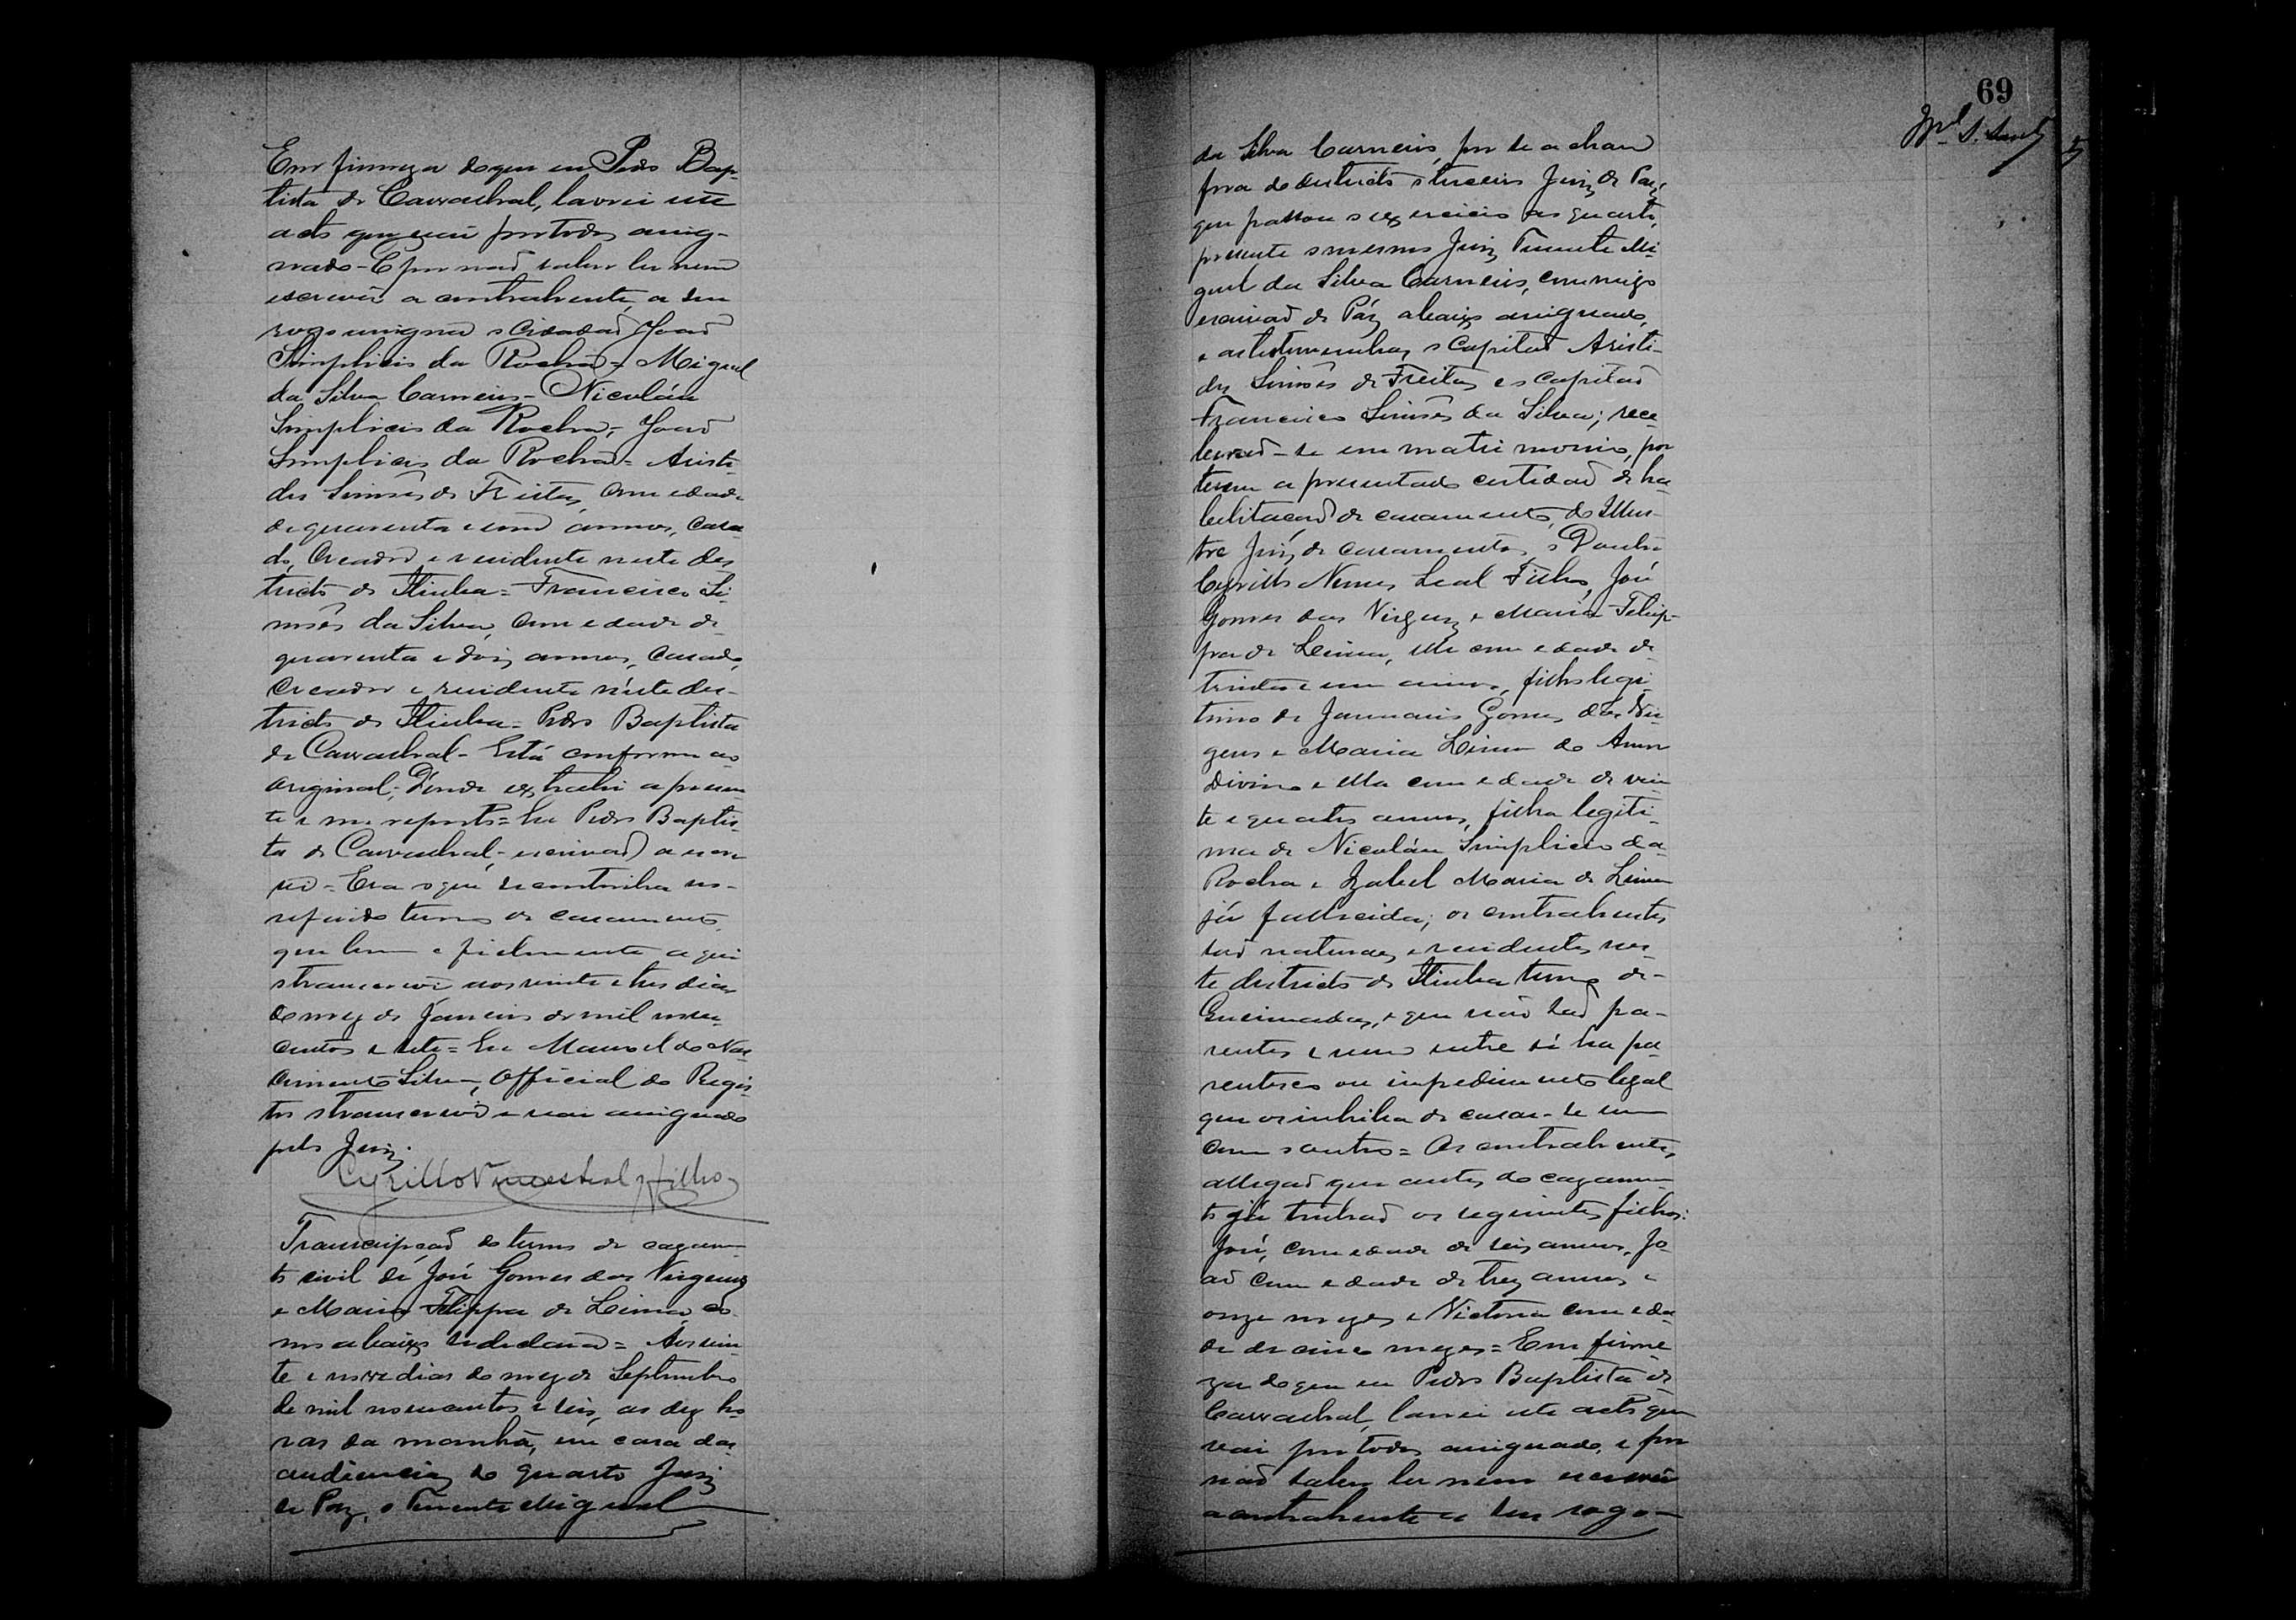 Em firmeza do que eu Pedro Bap-
tista de Carvalhal, lavrei este
acto que vai por todos assig-
nado - E por não saber ler nem
escrever a contrahente, a seu
rogo assigna o cidadão João
Simplicio da Rocha = Miguel
da Silva Carneiro - Nicoláu
Simplicio da Rocha, = João
Simplicio da Rocha = Aristi-
des Simões de Freitas, com edade
de quarenta e um annos, casa-
do, Creador e residente neste des-
tricto de Itiuba = Francisco Si-
mões da Silva, com edade de
quarenta e dois annos, casado,
Creador e residente néste des-
tricto de Itiuba = Pedro Baptista
de Carvalhal - Está conforme ao
original; D'onde extrahi a presen-
te e me reporto = Eu Pedro Baptis-
ta de Carvalhal, escrivão a escre-
vi = Era o que se continha no
referido termo de casamento,
que bem e fielmente aqui
transcrevi aos vinte e tres dias
do mez de Janeiro de mil nove-
centos e sete = Eu Manoel do Nas-
cimento Silva, Official do Regis-
tro transcrevi e vai assignado
pelo Juiz.
Cyrillo Nunes Leal Filho
Transcripção do termo de cazamen-
to civil de José Gomes das Virgens
e Maria Felippa de Lima, co-
mo abaixo se declara = Aos vin-
te e nove dias do mez de Septembro
de mil novecentos e seis, as dez ho-
ras da manhã, em casa das
audiencias do quarto Juiz
de Paz, o Tenente Miguel
69
da Silva Carneiro, por se achar
fora do destricto o terceiro Juiz de Paz,
que passou o exercicio ao quarto,
presente o mesmo Juiz Tenente Mi-
guel da Silva Carneiro, commigo
escrivão de Páz abaixo assignado,
e as testemunhas, o Capitão Aristi-
des Simões de Freitas e o Capitão
Francisco Simões da Silva; rece-
berão-se em matrimonio, por
terem apresentado certidão de ha-
bilitação de casamento, do Illus-
tre Juiz de casamentos, o Doutor
Cyrillo Nunes Leal Filho, José
Gomes das Virgens e Maria Felip-
pa de Lima, elle com edade de
trinta e um annos, filho legi-
timo de Januario Gomes das Vir-
gens e Maria Lima do Amor
Divino e ella com edade de vin-
te e quatro annos, filha legiti-
ma de Nicoláu Simplicio da
Rocha e Izabel Maria de Lima
já fallecida; os contrahentes
são naturaes e residentes nes-
te destricto de Itiuba termo de
Queimadas, e que não são pa-
rentes e nem entre si ha pa-
rentesco ou impedimento legal
que os inhiba de casar-se um
com o outro = Os contrahentes,
allegão que antes do cazamen-
to já tinhão os seguintes filhos:
José, com edade de seis annos, Jo-
ão com edade de trez annos e
onze mezes e Victoria com eda-
de de cinco mezes = Em firme-
za do que eu Pedro Baptista de
Carvalhal, lavrei este acto que
vai por todos assignado, e por
não saber ler nem escrever
a contrahente a seu rogo